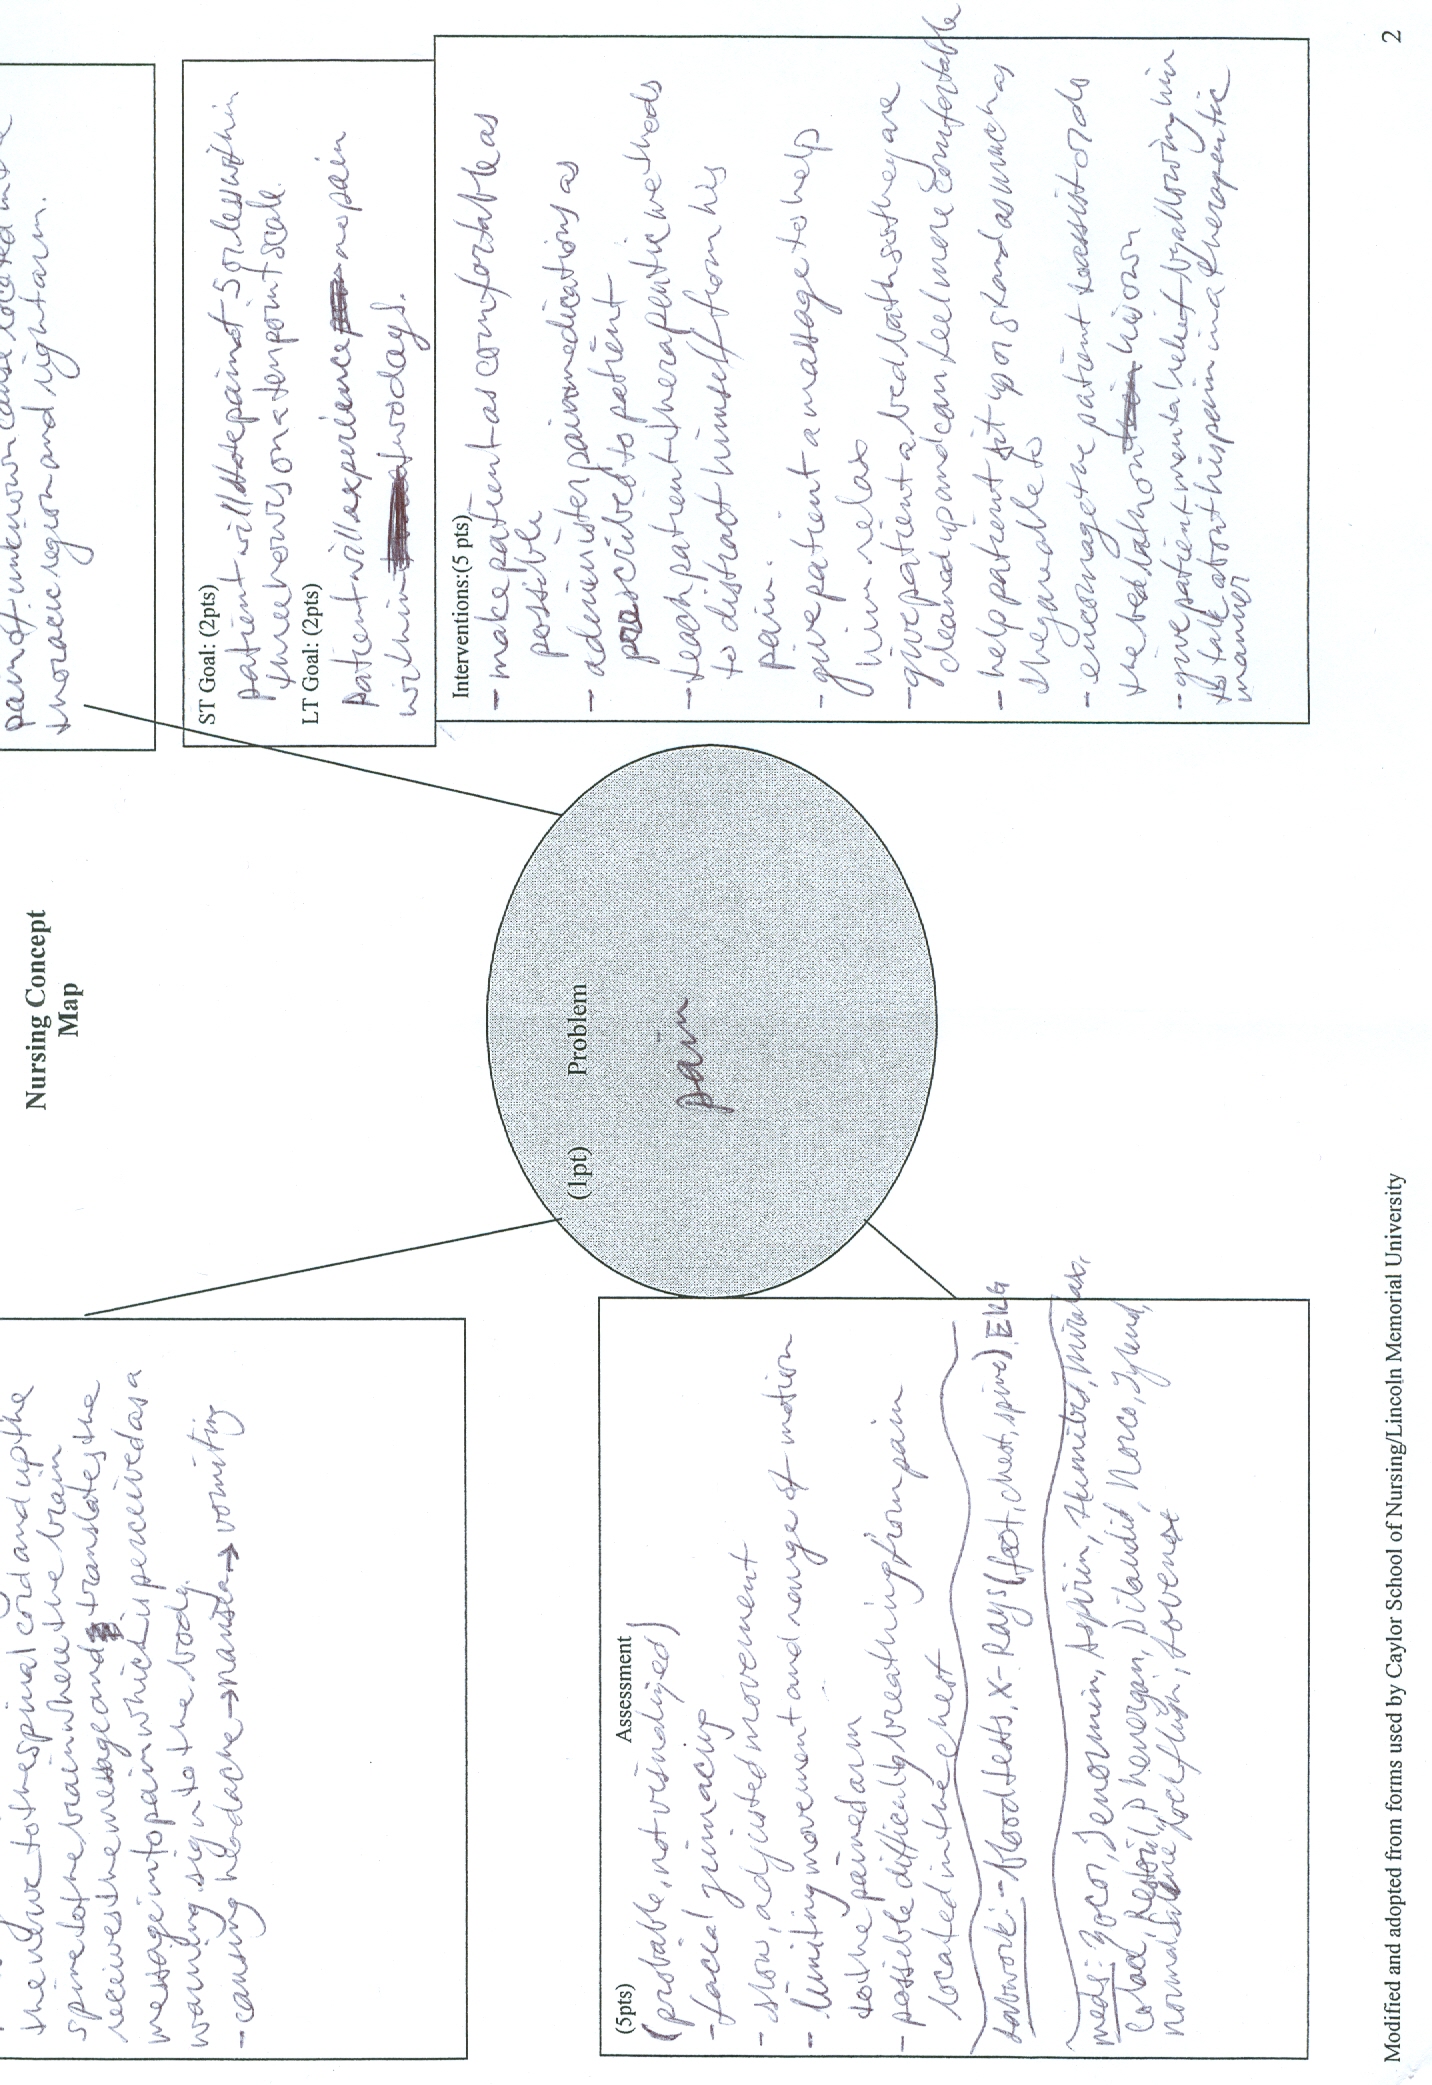 Nursing Concept
Map
the nerve to the spinal cord and up the
spine to the brain where the brain
receives the message and translates the
message into pain which is perceived as a
warning sign to the body.
- causing headache → nausea → vomiting
pain of unknown cause located in the
thoracic region and right arm.
ST Goal: (2pts)
patient will state pain at 5 or less within
three hours on a ten point scale.
LT Goal: (2pts)
patient will experience no pain
within two days.
(1pt) Problem
pain
Interventions:(5 pts)
- make patient as comfortable as
possible
- administer pain medications as
prescribed to patient
- teach patient therapeutic methods
to distract himself from his
pain.
- give patient a massage to help
him relax
- give patient a bed bath so they are
cleaned up and can feel more comfortable
- help patient sit up or stand as much as
they are able to
- encourage the patient to assist or do
the bed bath on his own
- give patient mental relief by allowing him
to talk about his pain in a therapeutic
manner
(5pts) Assessment
(probable, not visualized)
- facial grimacing
- slow, adjusted movement
- limiting movement and range of motion
to the pained arm
- possible difficulty breathing from pain
located in the chest
labwork: - blood tests, X-Rays (foot, chest, spine), EKG
meds: Zocor, Tenormin, Aspirin, Humibid, Miralax,
Colace, Restoril, phenergan, Dilaudid, Norco, Tylenol,
normal saline lock flush, Lovenox
Modified and adopted from forms used by Caylor School of Nursing/Lincoln Memorial University
2